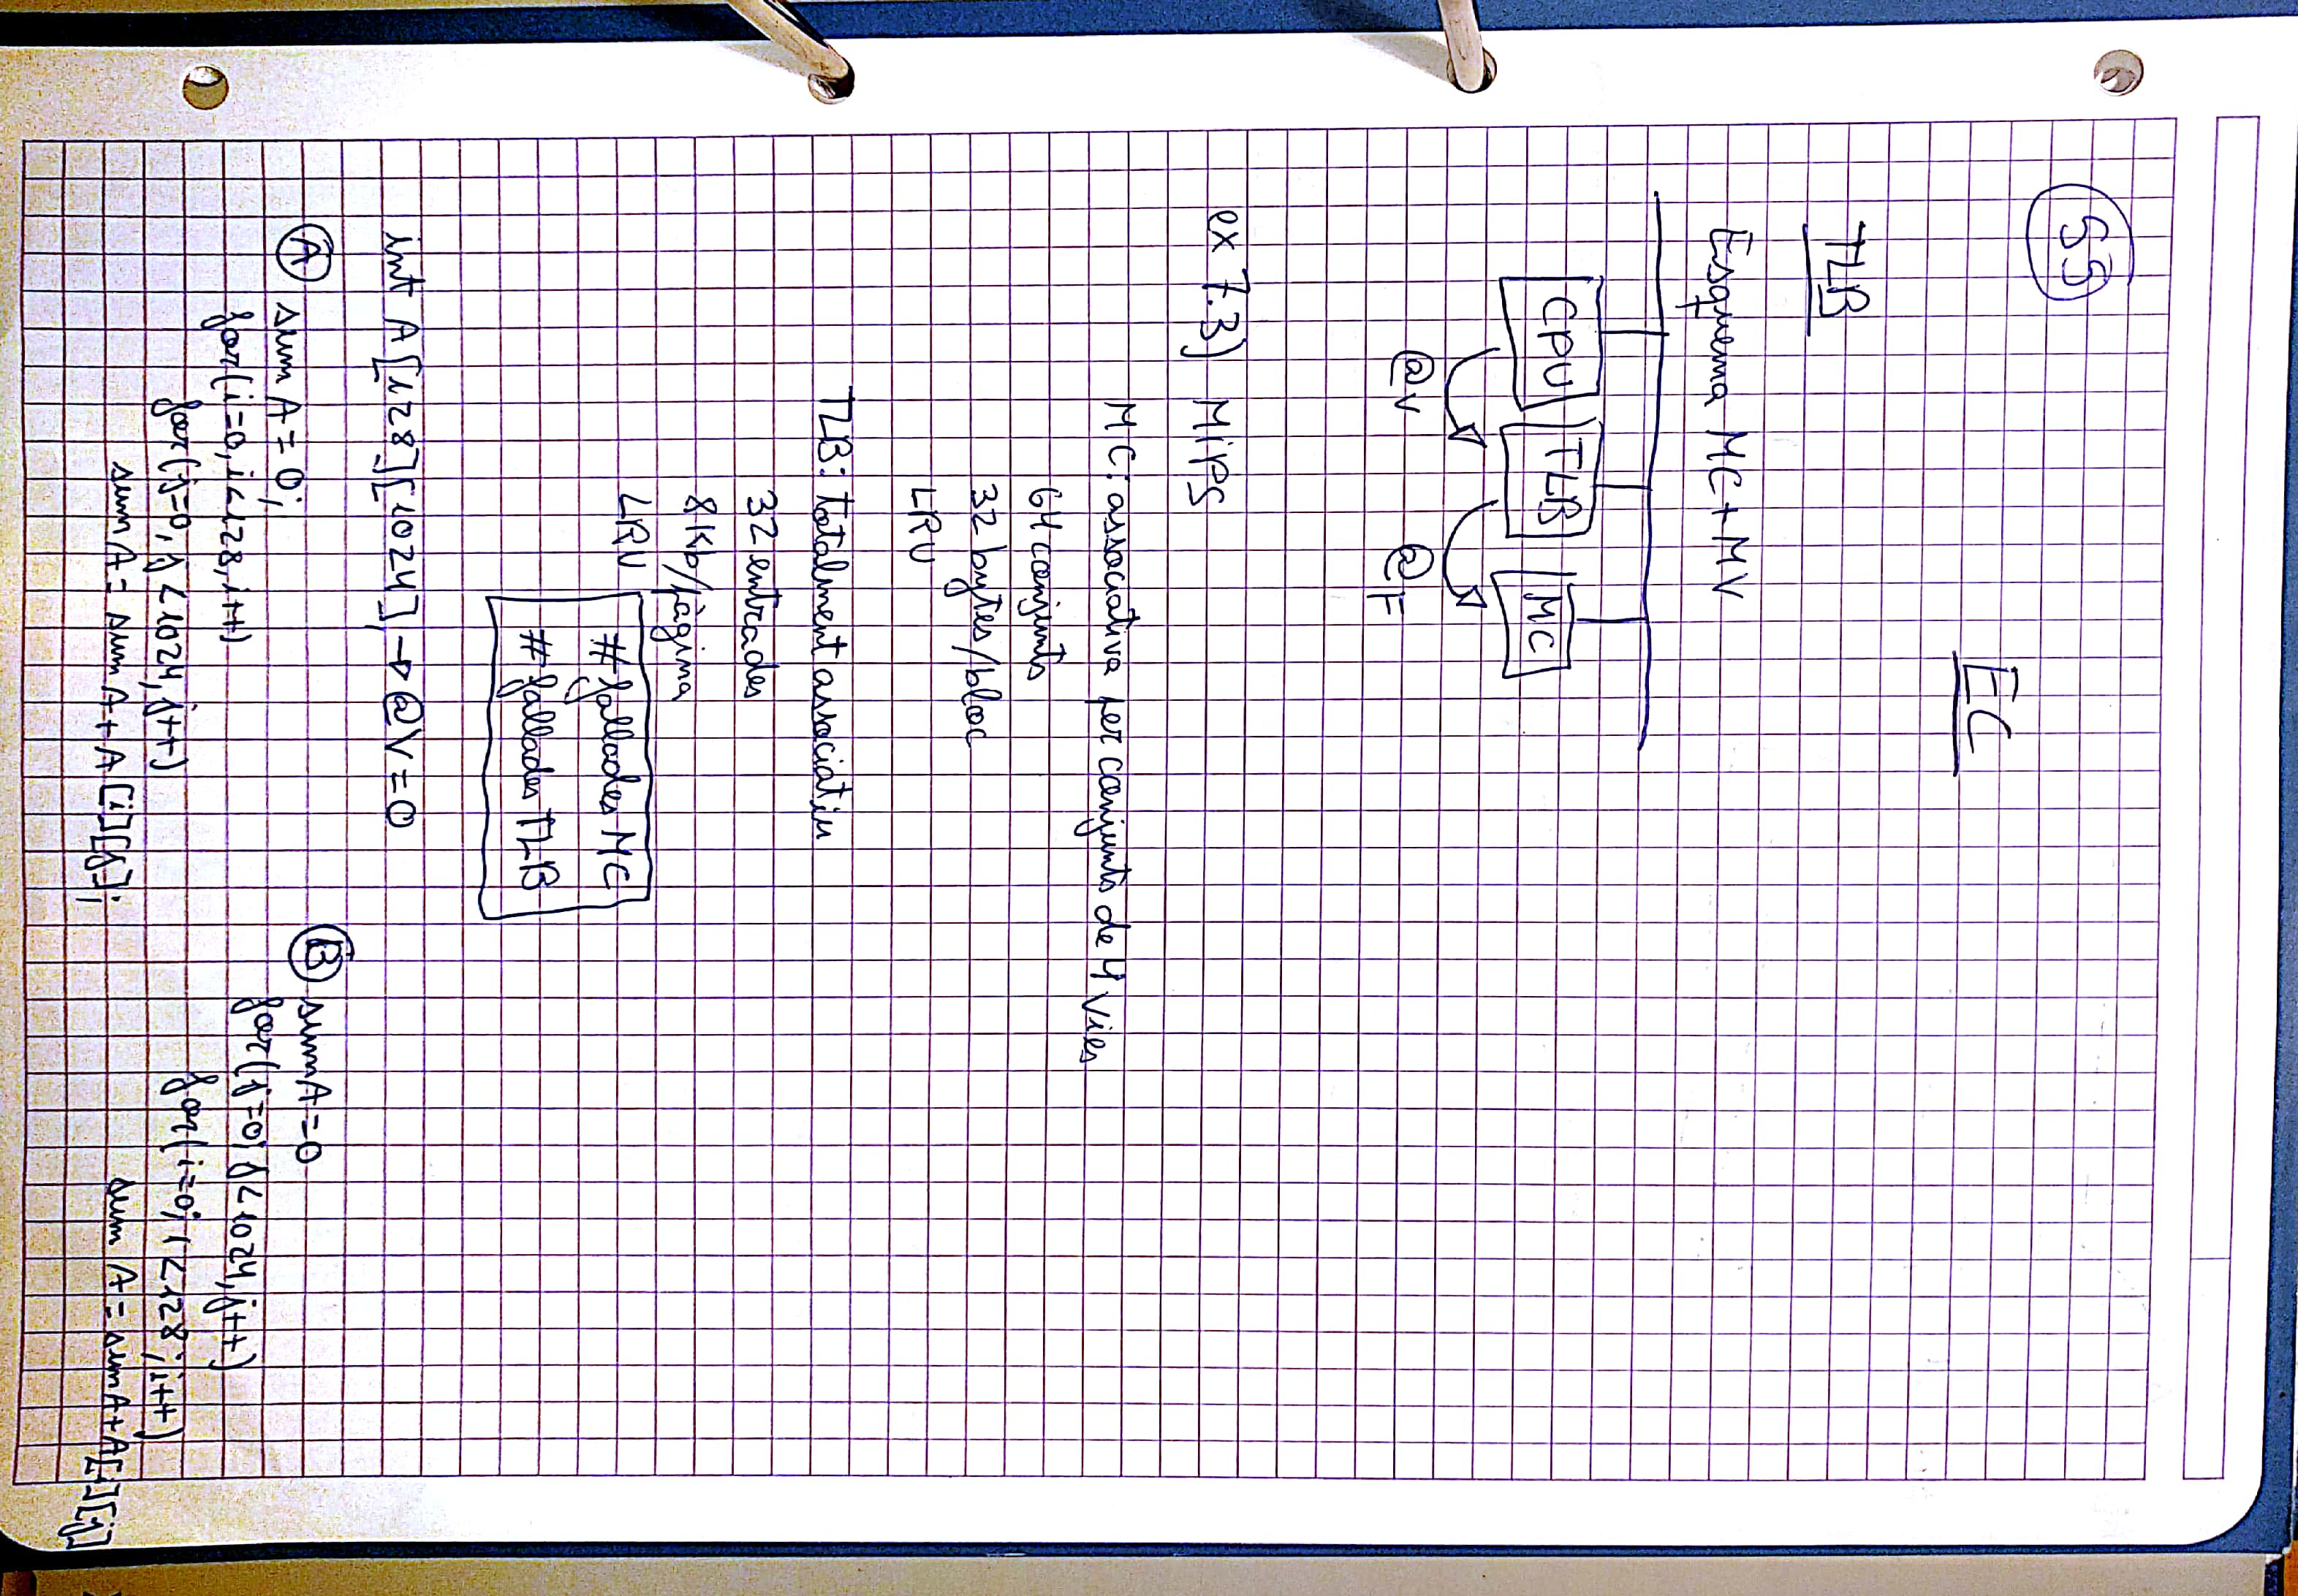 55
EC
TLB
Esquema MC+MV
CPU TLB MC
@V @F
ex 7.3) MiPS
MC: associativa per conjunts de 4 vies
64 conjunts
32 bytes/bloc
LRU
TLB: totalment associatiu
32 entrades
8 Kb/pàgina
LRU
# fallades MC
# fallades TLB
int A[128][1024] → @V = 0
A sum A = 0;
for(i=0, i<128, i++)
for(j=0, j<1024, j++)
sum A = sum A + A[i][j];
B sum A = 0
for(j=0; j<1024, j++)
for(i=0; i<128; i++)
sum A = sum A + A[i][j]